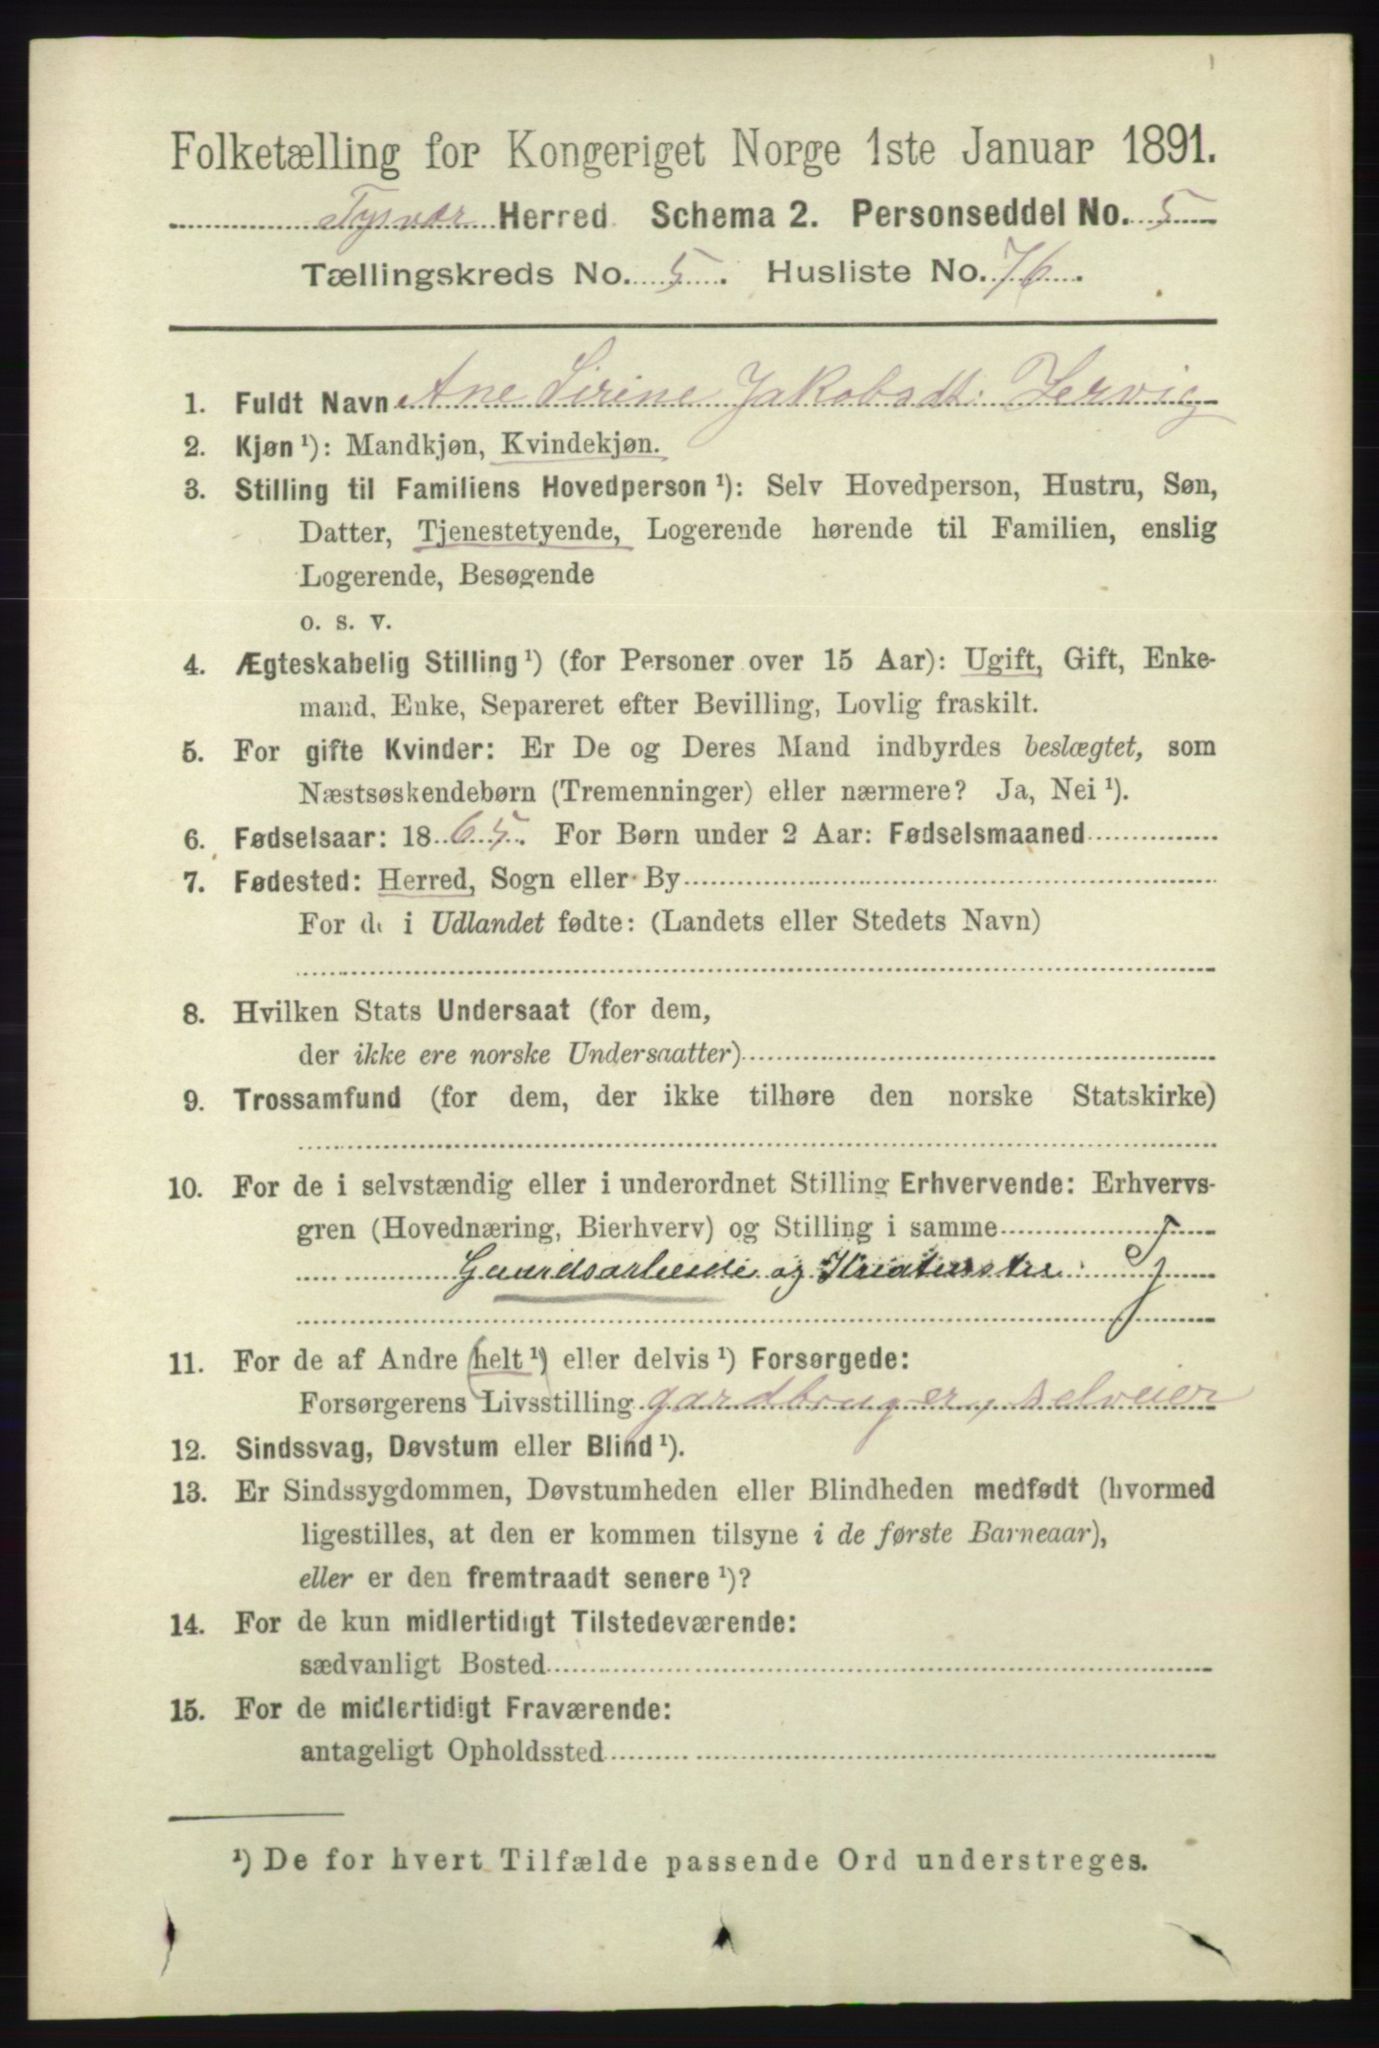 Folketælling for Kongeriget Norge 1ste Januar 1891.
Tysvær Herred Schema 2. Personseddel No. 5
Tællingskreds No. 5. Husliste No. 76.
1. Fuldt Navn Ane Sirine Jakobsdt. Jervig
2. Kjøn ¹): Mandkjøn, Kvindekjøn.
3. Stilling til Familiens Hovedperson ¹): Selv Hovedperson, Hustru, Søn,
Datter, Tjenestetyende, Logerende hørende til Familien, enslig
Logerende, Besøgende
o. s. v.
4. Ægteskabelig Stilling ¹) (for Personer over 15 Aar): Ugift, Gift, Enke-
mand, Enke, Separeret efter Bevilling, Lovlig fraskilt.
5. For gifte Kvinder: Er De og Deres Mand indbyrdes beslægtet, som
Næstsøskendebørn (Tremenninger) eller nærmere? Ja, Nei ¹).
6. Fødselsaar: 1865. For Børn under 2 Aar: Fødselsmaaned
7. Fødested: Herred, Sogn eller By
For de i Udlandet fødte: (Landets eller Stedets Navn)
8. Hvilken Stats Undersaat (for dem,
der ikke ere norske Undersaatter)
9. Trossamfund (for dem, der ikke tilhøre den norske Statskirke)
10. For de i selvstændig eller i underordnet Stilling Erhvervende: Erhvervs-
gren (Hovednæring, Bierhverv) og Stilling i samme
Gaardsarbeide og Kreaturstel
11. For de af Andre (helt ¹) eller delvis ¹) Forsørgede:
Forsørgerens Livsstilling gardbruger, selveier
12. Sindssvag, Døvstum eller Blind ¹).
13. Er Sindssygdommen, Døvstumheden eller Blindheden medfødt (hvormed
ligestilles, at den er kommen tilsyne i de første Barneaar),
eller er den fremtraadt senere ¹)?
14. For de kun midlertidigt Tilstedeværende:
sædvanligt Bosted
15. For de midlertidigt Fraværende:
antageligt Opholdssted
¹) De for hvert Tilfælde passende Ord understreges.